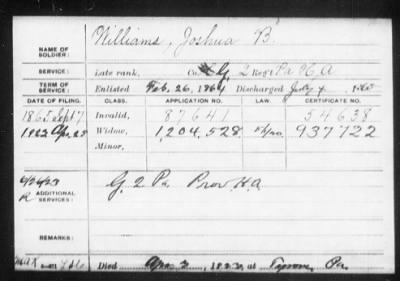 NAME OF SOLDIER: Williams, Joshua B.
SERVICE: Late rank, Co. G, 2 Reg't Pa H A
TERM OF SERVICE: Enlisted Feb. 26, 1864 Discharged July 4, 1865
DATE OF FILING. CLASS. APPLICATION NO. LAW. CERTIFICATE NO.
1865 Sept 7 Invalid, 87641 54638
1922 Apr. 28 Widow, 1,204,528 937722
Minor,
ADDITIONAL SERVICES: G. 2 Pa. Prov. H.A.
REMARKS:
Died Apr. 2, 1922, at Tyrone, Pa.